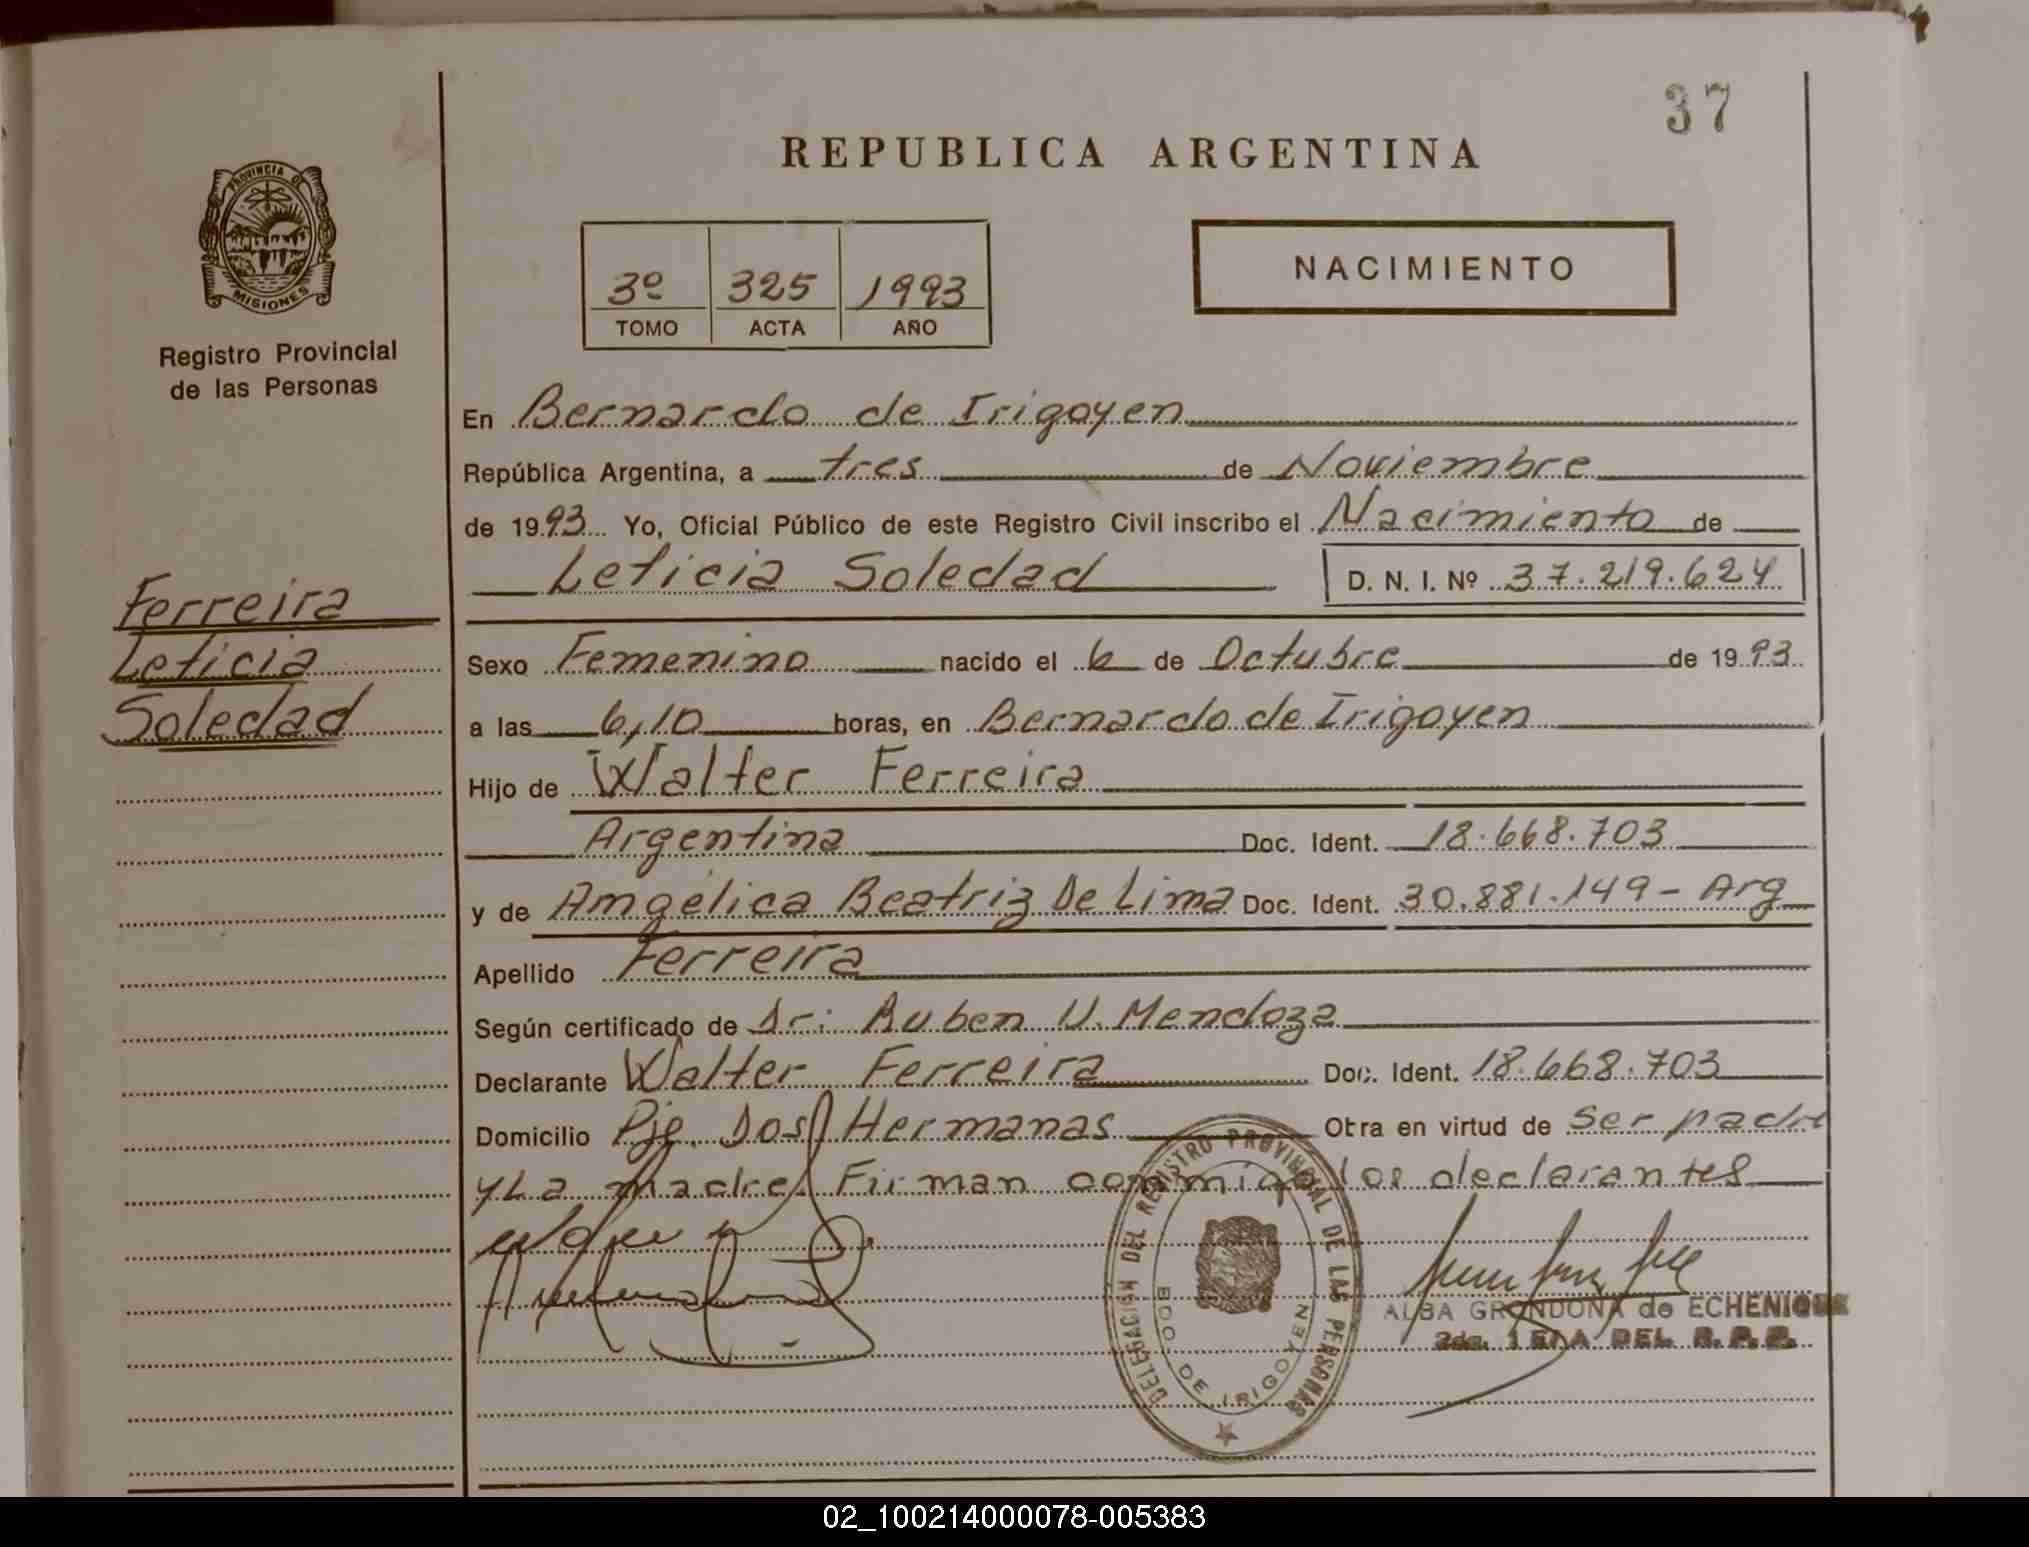 37
REPUBLICA ARGENTINA
PROVINCIA DE
MISIONES
Registro Provincial
de las Personas
3º 325 1993
TOMO ACTA AÑO
NACIMIENTO
En Bernardo de Irigoyen
República Argentina, a tres de Noviembre
de 1993 Yo, Oficial Público de este Registro Civil inscribo el Nacimiento de
Leticia Soledad D. N. I. Nº 37.219.624
Ferreira
Leticia
Soledad
Sexo Femenino nacido el 6 de Octubre de 1993
a las 6,10 horas, en Bernardo de Irigoyen
Hijo de Walter Ferreira
Argentina Doc. Ident. 18.668.703
y de Angélica Beatriz De Lima Doc. Ident. 30.881.149 - Arg
Apellido Ferreira
Según certificado de Dr: Ruben U. Mendoza
Declarante Walter Ferreira Doc. Ident. 18.668.703
Domicilio Pje. Dos Hermanas Otra en virtud de ser padre
y La madre Firman conmigo los declarantes
DELEGACION DEL REGISTRO PROVINCIAL DE LAS PERSONAS
BDO. DE IRIGOYEN
ALBA GRONDONA de ECHENIQUE
DEL R.P.P.
02_100214000078-005383